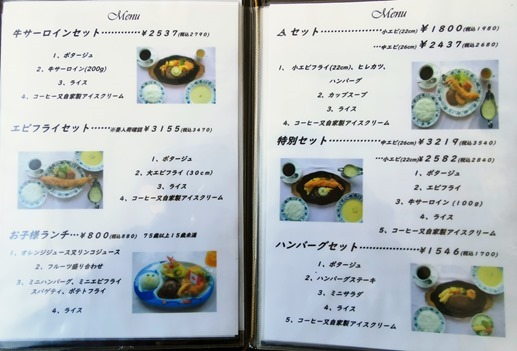 Menu
牛サーロインセット・・・・・・¥2537(税込2790)
1、ポタージュ
2、牛サーロイン(200g)
3、ライス
4、コーヒー又自家製アイスクリーム
エビフライセット・・・・・・※要入荷確認¥3155(税込3470)
1、ポタージュ
2、大エビフライ(30cm)
3、ライス
4、コーヒー又自家製アイスクリーム
お子様ランチ・・・¥800(税込880) 75歳以上15歳未満
1、オレンジジュース又リンゴジュース
2、フルーツ盛り合わせ
3、ミニハンバーグ、ミニエビフライ
スパゲティ、ポテトフライ
4、ライス
Menu
Aセット・・・・・・・・・・・・小エビ(22cm)¥1800(税込1980)
・・・中エビ(26cm)¥2437(税込2680)
1、小エビフライ(22cm)、ヒレカツ、
ハンバーグ
2、カップスープ
3、ライス
4、コーヒー又自家製アイスクリーム
特別セット・・・・・・・・・・・・中エビ(26cm)¥3219(税込3540)
・・・小エビ(22cm)¥2582(税込2840)
1、ポタージュ
2、エビフライ
3、牛サーロイン(100g)
4、ライス
5、コーヒー又自家製アイスクリーム
ハンバーグセット・・・・・・・・・・・・¥1546(税込1700)
1、ポタージュ
2、ハンバーグステーキ
3、ミニサラダ
4、ライス
5、コーヒー又自家製アイスクリーム